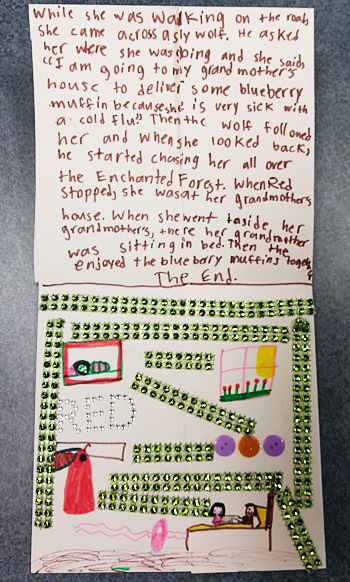 While she was walking on the road,
she came across a sly wolf. He asked
her where she was going and she said,
"I am going to my grandmother's
house to deliver some blueberry
muffin because she is very sick with
a cold flu." Then the wolf followed
her and when she looked back,
he started chasing her all over
the Enchanted Forest. When Red
stopped, she was at her grandmothers
house. When she went inside her
grandmothers, there her grandmother
was sitting in bed. Then the
enjoyed the blueberry muffins
The End.
RED